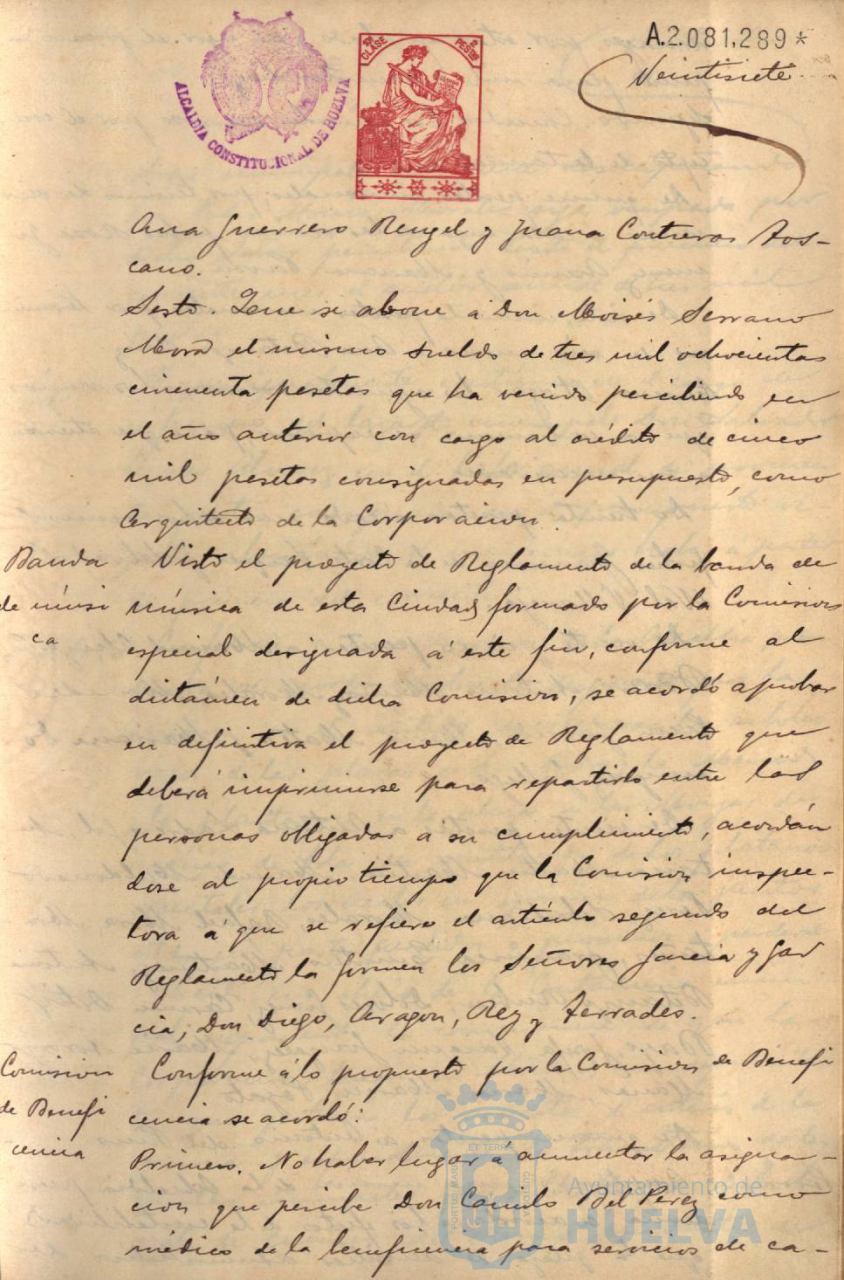 ALCALDIA CONSTITUCIONAL DE HUELVA
CLASE
PESETAS
A.2.081,289*
Veintisiete
Ana Guerrero Rengel y Juana Contreras Tos-
cano.
Sesto. Que se abone á Don Moisés Serrano
Mora el mismo sueldo de tres mil ochocientas
cincuenta pesetas que ha venido percibiendo en
el año anterior con cargo al crédito de cinco
mil pesetas consignadas en presupuesto, como
Arquitecto de la Corporacion.
Banda
de músi
ca
Visto el proyecto de Reglamento de la banda de
música de esta Ciudad formado por la Comision
especial designada á este fin, conforme al
dictámen de dicha Comision, se acordó aprobar
en definitiva el proyecto de Reglamento que
deberá imprimirse para repartirlo entre las
personas obligadas á su cumplimiento, acordán
dose al propio tiempo que la Comision inspec-
tora á que se refiere el artículo segundo del
Reglamento la formen los Señores Garcia y Gar
cia, Don Diego, Aragon, Rey y Terrades.
Comision
de Benefi
cencia
Conforme á lo propuesto por la Comision de Benefi
cencia se acordó:
Primero. No haber lugar á aumentar la asigna-
cion que percibe Don Camilo Bel Perez como
médico de la beneficencia para servicios de ca-
Ayuntamiento de
HUELVA